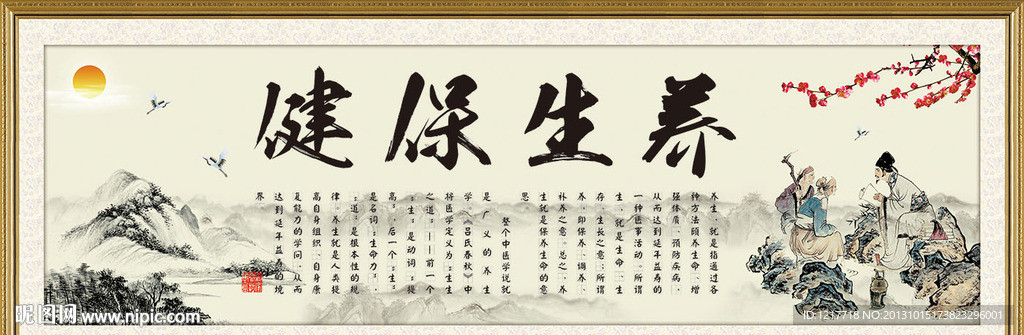 养生保健
养生，就是指通过各
种方法颐养生命、增
强体质、预防疾病，
从而达到延年益寿的
一种医事活动。所谓
生，就是生命、生
存、生长之意；所谓
养，即保养、调养、
补养之意。总之，养
生就是保养生命的意
思
整个中医学说就
是广义的养生
学。《吕氏春秋》中
将医学定义为：生生
之道：——前一个
：生：是动词：提
高；后一个：生：
是名词：生命力，
：道：是根本性的规
律。养生就是人类提
高自身组织、自身康
复能力的学问，从而
达到延年益寿的境
界
昵图网 www.nipic.com
ID:1217718 NO:20131015173823296001